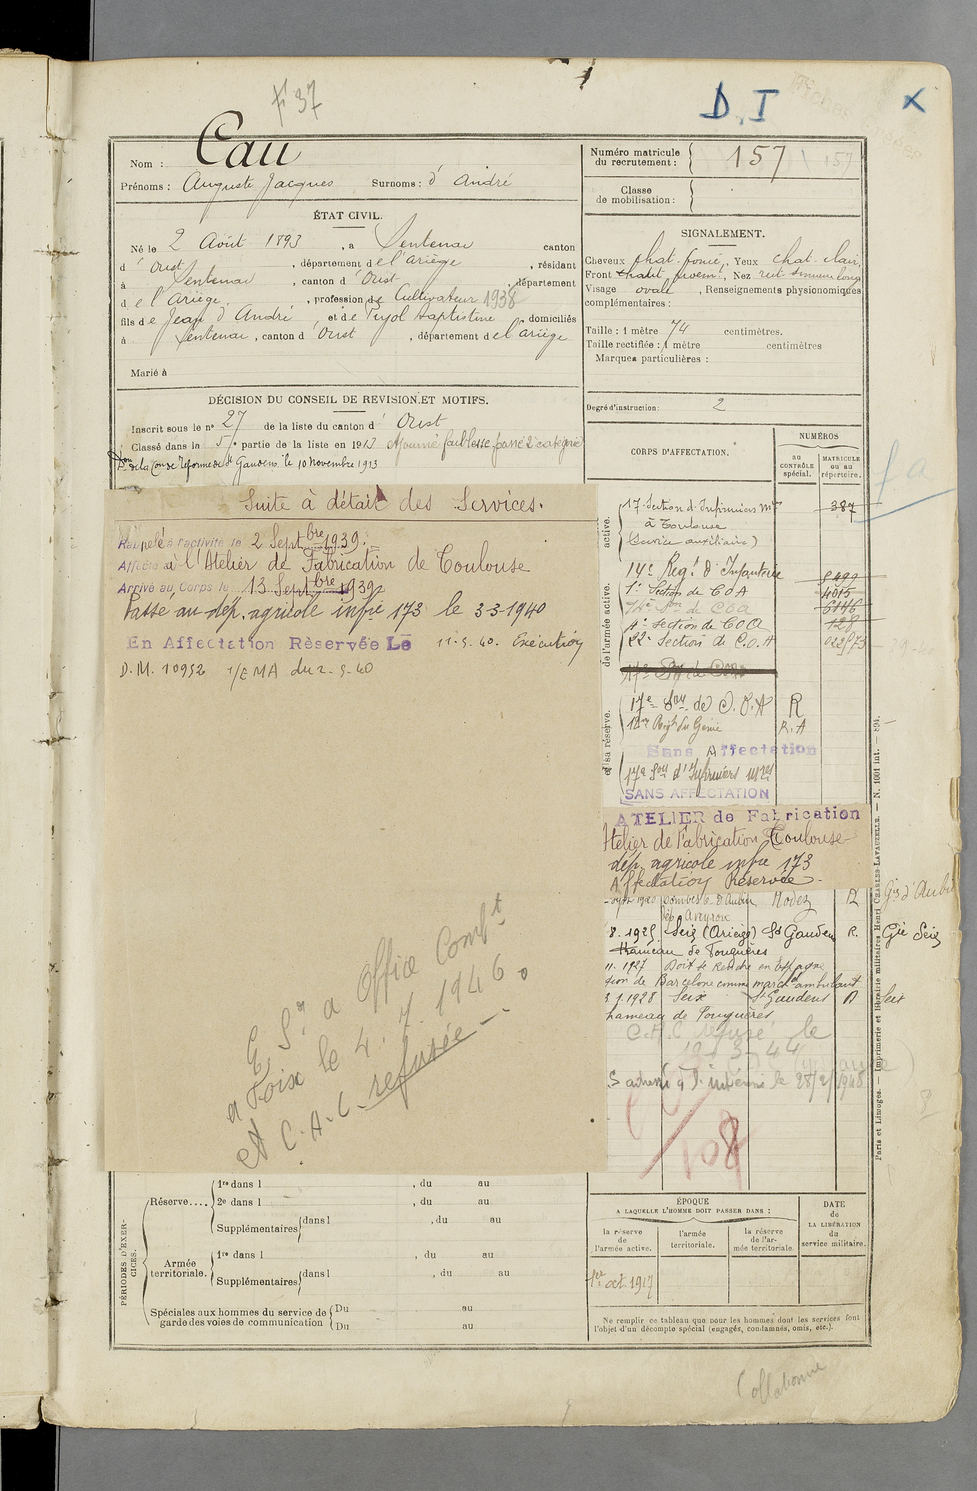 F 37
D. I
x
Nom : Cau
Prénoms : Auguste Jacques Surnoms : d'André
Numéro matricule du recrutement : 157
Classe de mobilisation :
ÉTAT CIVIL.
Né le 2 Août 1893, à Sentenac canton
d'Oust, département de l'Ariège, résidant
à Sentenac, canton d'Oust, département
de l'Ariège, profession de Cultivateur 1938
fils de Jean d'André et de Pujol Baptistine domiciliés
à Sentenac, canton d'Oust, département de l'Ariège
Marié à
SIGNALEMENT.
Cheveux chat. foncé, Yeux chat. clair
Front, Nez rect.
Visage ovale, Renseignements physionomiques
complémentaires :
Taille : 1 mètre 74 centimètres.
Taille rectifiée : 1 mètre centimètres
Marques particulières :
DÉCISION DU CONSEIL DE REVISION ET MOTIFS.
Inscrit sous le n° 27 de la liste du canton d'Oust
Classé dans la 5e partie de la liste en 1913 Ajourné faiblesse, passé 2e catégorie
de la Con de réforme de St Gaudens le 10 Novembre 1913
Degré d'instruction : 2
CORPS D'AFFECTATION.
NUMÉROS
au CONTRÔLE spécial.
MATRICULE ou au répertoire.
Suite à détail des Services.
Rappelé à l'activité le 2 Septbre 1939.
Affecté à l'Atelier de Fabrication de Toulouse
Arrivé au Corps le 13 Septbre 1939
Passé au dép. agricole infie 173 le 3-3-1940
En Affectation Réservée Le 11-5-40. Exécution
D.M. 10952 1/EMA du 2-5-40
active.
17e Section d'Infirmiers mres 387
à Toulouse
(Service auxiliaire)
de l'armée active.
14e Régt d'Infanterie 8499
1e Section de COA 4015
de COA 6146
4e Section de COA 125
22e Section de C.O.A 022573
et sa réserve.
17e Son de C.O.A R
Régt du Génie R.A
Sans Affectation
17e Son d'Infirmiers mres
SANS AFFECTATION
ATELIER de Fabrication
Atelier de Fabrication Toulouse
dép. agricole infie 173
Affectation Réservée
Aubin Rodez R
Aveyron
8.1925 Seix (Ariège) St Gaudens R. Gie Seix
hameau de Fouguères
11. 1927 Doit se rendre en Espagne
Barcelone comme marchd ambulant
1928 Seix St Gaudens D Seix
hameau de Fouguères
C.A.C refusé le
12-3-44
108
a Office Combt
a Foix le 4. 7. 1946.
et C.A.C. refusée
PÉRIODES D'EXERCICES.
Réserve....
1re dans l , du au
2e dans l , du au
Supplémentaires dans l , du au
Armée territoriale.
1re dans l , du au
Supplémentaires dans l , du au
Spéciales aux hommes du service de garde des voies de communication
Du au
Du au
ÉPOQUE
A LAQUELLE L'HOMME DOIT PASSER DANS :
la réserve de l'armée active.
l'armée territoriale.
la réserve de l'armée territoriale.
DATE de LA LIBÉRATION du service militaire.
1er oct. 1917
Ne remplir ce tableau que pour les hommes dont les services font
l'objet d'un décompte spécial (engagés, condamnés, omis, etc.).
Paris et Limoges. — Imprimerie et librairie militaires Henri CHARLES-LAVAUZELLE. — N. 1001 int. — 894.
Collationné